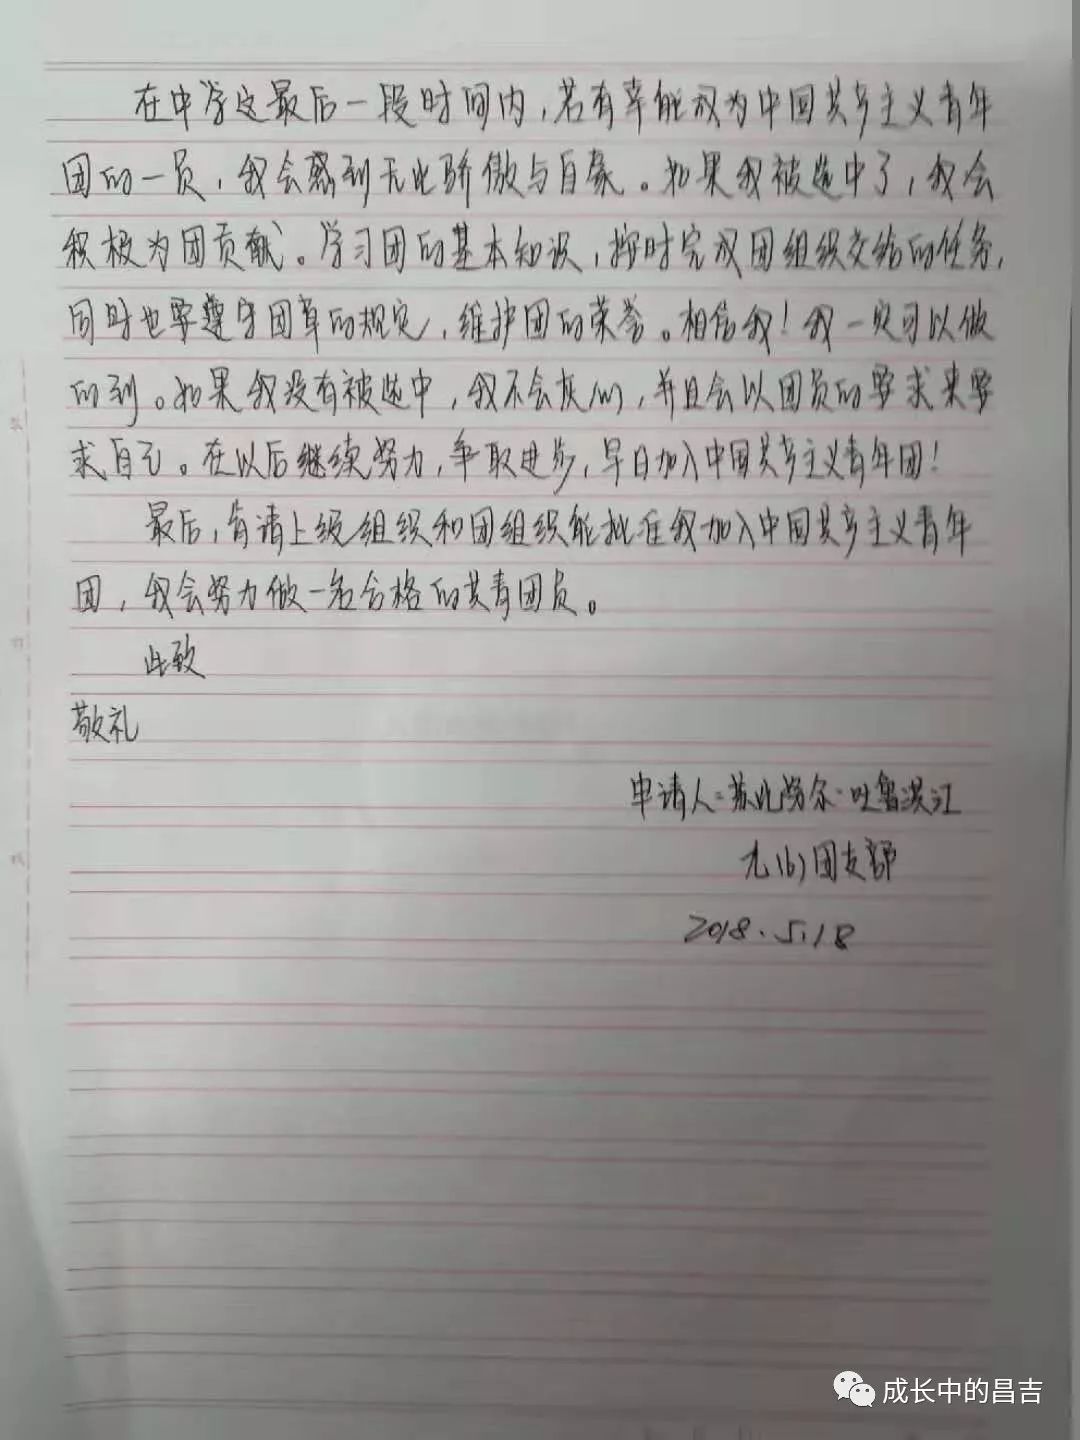 在中学这最后一段时间内，若有幸能成为中国共产主义青年
团的一员，我会感到无比骄傲与自豪。如果我被选中了，我会
积极为团贡献。学习团的基本知识，按时完成团组织交给的任务，
同时也要遵守团章的规定，维护团的荣誉。相信我！我一定可以做
的到。如果我没有被选中，我不会灰心，并且会以团员的要求来要
求自己。在以后继续努力，争取进步，早日加入中国共产主义青年团！
最后，肯请上级组织和团组织能批准我加入中国共产主义青年
团，我会努力做一名合格的共青团员。
此致
敬礼
申请人：苏比努尔·吐鲁洪江
九(6)团支部
2018.5.18
成长中的昌吉